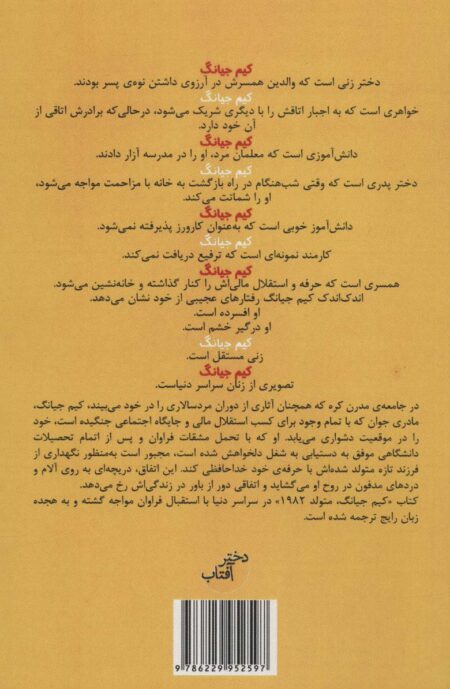 کیم جیانگ
دختر زنی است که والدین همسرش در آرزوی داشتن نوه‌ی پسر بودند.
کیم جیانگ
خواهری است که به اجبار اتاقش را با دیگری شریک می‌شود، درحالی‌که برادرش اتاقی از
آن خود دارد.
کیم جیانگ
دانش‌آموزی است که معلمان مرد، او را در مدرسه آزار دادند.
کیم جیانگ
دختر پدری است که وقتی شب‌هنگام در راه بازگشت به خانه با مزاحمت مواجه می‌شود،
او را شماتت می‌کند.
کیم جیانگ
دانش‌آموز خوبی است که به‌عنوان کارورز پذیرفته نمی‌شود.
کیم جیانگ
کارمند نمونه‌ای است که ترفیع دریافت نمی‌کند.
کیم جیانگ
همسری است که حرفه و استقلال مالی‌اش را کنار گذاشته و خانه‌نشین می‌شود.
اندک‌اندک کیم جیانگ رفتارهای عجیبی از خود نشان می‌دهد.
او افسرده است.
او درگیر خشم است.
کیم جیانگ
زنی مستقل است.
کیم جیانگ
تصویری از زنان سراسر دنیاست.
در جامعه‌ی مدرن کره که همچنان آثاری از دوران مردسالاری را در خود می‌بیند، کیم جیانگ،
مادری جوان که با تمام وجود برای کسب استقلال مالی و جایگاه اجتماعی جنگیده است، خود
را در موقعیت دشواری می‌یابد. او که با تحمل مشقات فراوان و پس از اتمام تحصیلات
دانشگاهی موفق به دستیابی به شغل دلخواهش شده است، مجبور است به‌منظور نگهداری از
فرزند تازه متولد شده‌اش با حرفه‌ی خود خداحافظی کند. این اتفاق، دریچه‌ای به روی آلام و
دردهای مدفون در روح او می‌گشاید و اتفاقی دور از باور در زندگی‌اش رخ می‌دهد.
کتاب «کیم جیانگ، متولد ۱۹۸۲» در سراسر دنیا با استقبال فراوان مواجه گشته و به هجده
زبان رایج ترجمه شده است.
دختر
آفتاب
9 786229 952597